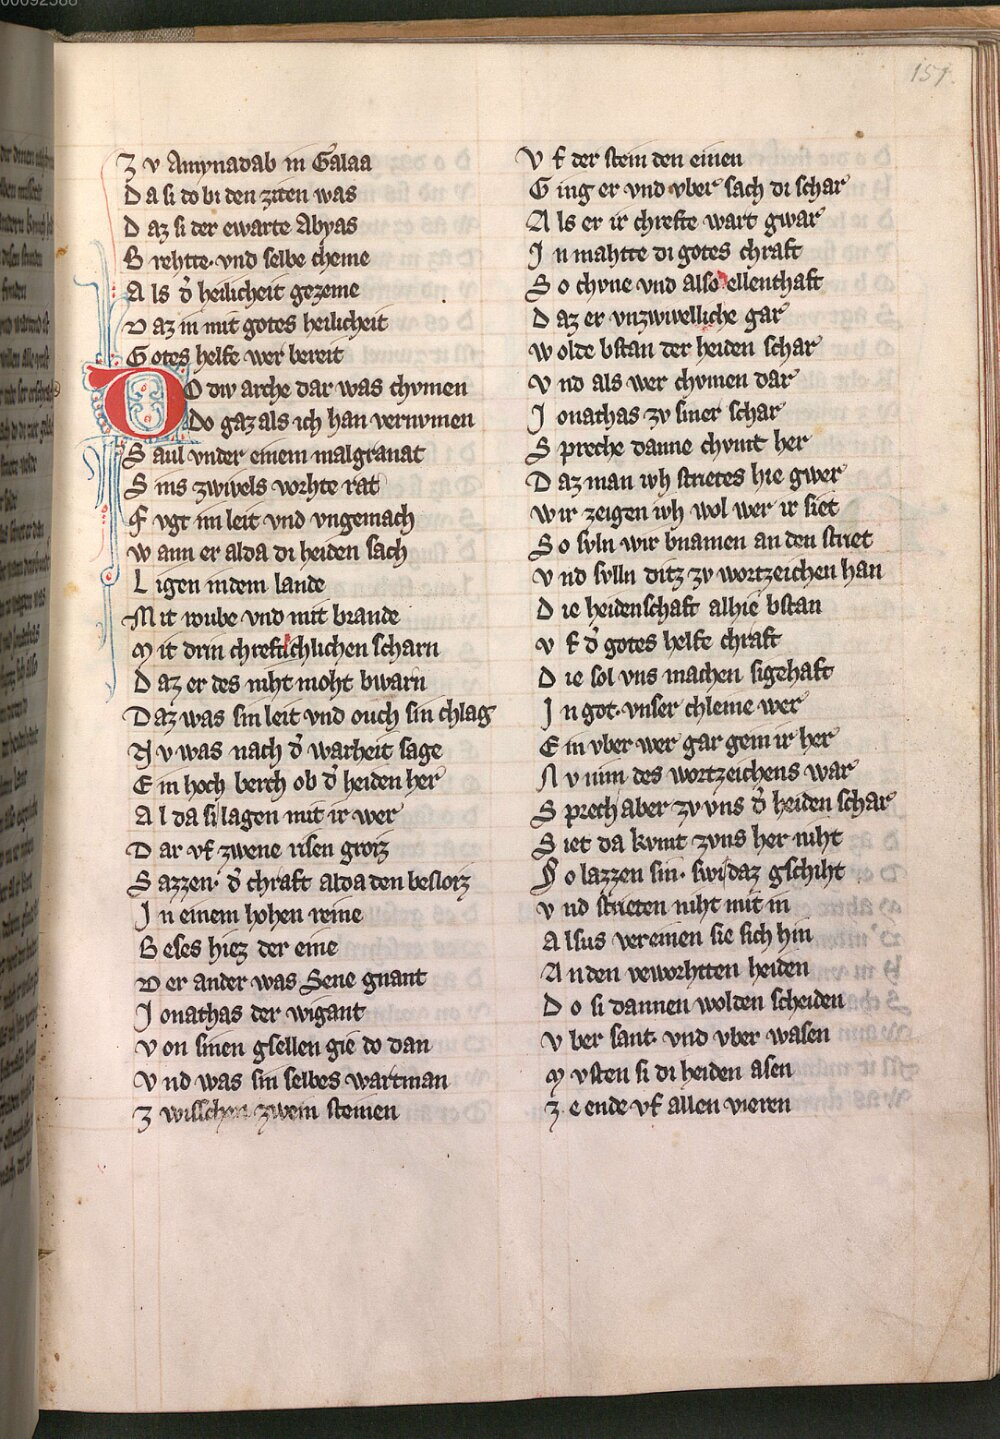 151.
Z v Amynadab in Galaa
D a si do bi den ziten was
D az si der ewarte Abyas
B rehtte· vnd selbe cheme
A ls d̉ heilicheit gezeme
D az in mit gotes heilicheit
G otes helfe wer bereit
DO div arche dar was chvmen
Do gaz als ich han vernvmen
S aul vnder einem malgranat
S ins zwivels vorhte rat
F vgt im leit vnd vngemach
w ann er alda di heiden sach
L igen in dem lande
M it roube vnd mit brande
M it drin chreftichlichen scharn
D az er des niht moht bwarn
D az was sin leit vnd ouch sin chlag
N v was nach d̉ warheit sage
E in hoch berch ob d̉ heiden her
A l da si lagen mit ir wer
D ar vf zwene risen groz
S azzen· d̉ chraft alda den besloz
J n einem hohen reine
B eses hiez der eine
D er ander was Sene gnant
J onathas der wigant
v on sinen gsellen gie do dan
v nd was sin selbes wartman
Z wisschen zwein steinen
V f der stein den einen
G ing er vnd vber sach di schar
A ls er ir chrefte wart gwar
J n mahtte di gotes chraft
S o chvne vnd also ellenthaft
D az er vnzwivelliche gar
w olde bstan der heiden schar
v nd als wer chvmen dar
J onathas zv siner schar
S preche danne chvmt her
D az man iwh strietes hie gwer
w ir zeigen iwh wol wer ir siet
S o svln wir bnamen an den striet
v nd svlln ditz zv wortzeichen han
D ie heidenschaft alhie bstan
v f d̉ gotes helfe chraft
D ie sol vns machen sigehaft
J n got· vnser chleine wer
E in vber wer gar gein ir her
N v nim des wortzeichens war
S prech aber zv vns d̉ heiden schar
S iet da kvmt zvns her niht
S o lazzen sin· swi daz gschiht
v nd strieten niht mit in
A lsus vereinen sie sich hin
A n den veworhtten heiden
D o si dannen wolden scheiden
v ber sant· vnd vber wasen
M vsten si di heiden asen
Z e ende vf allen vieren